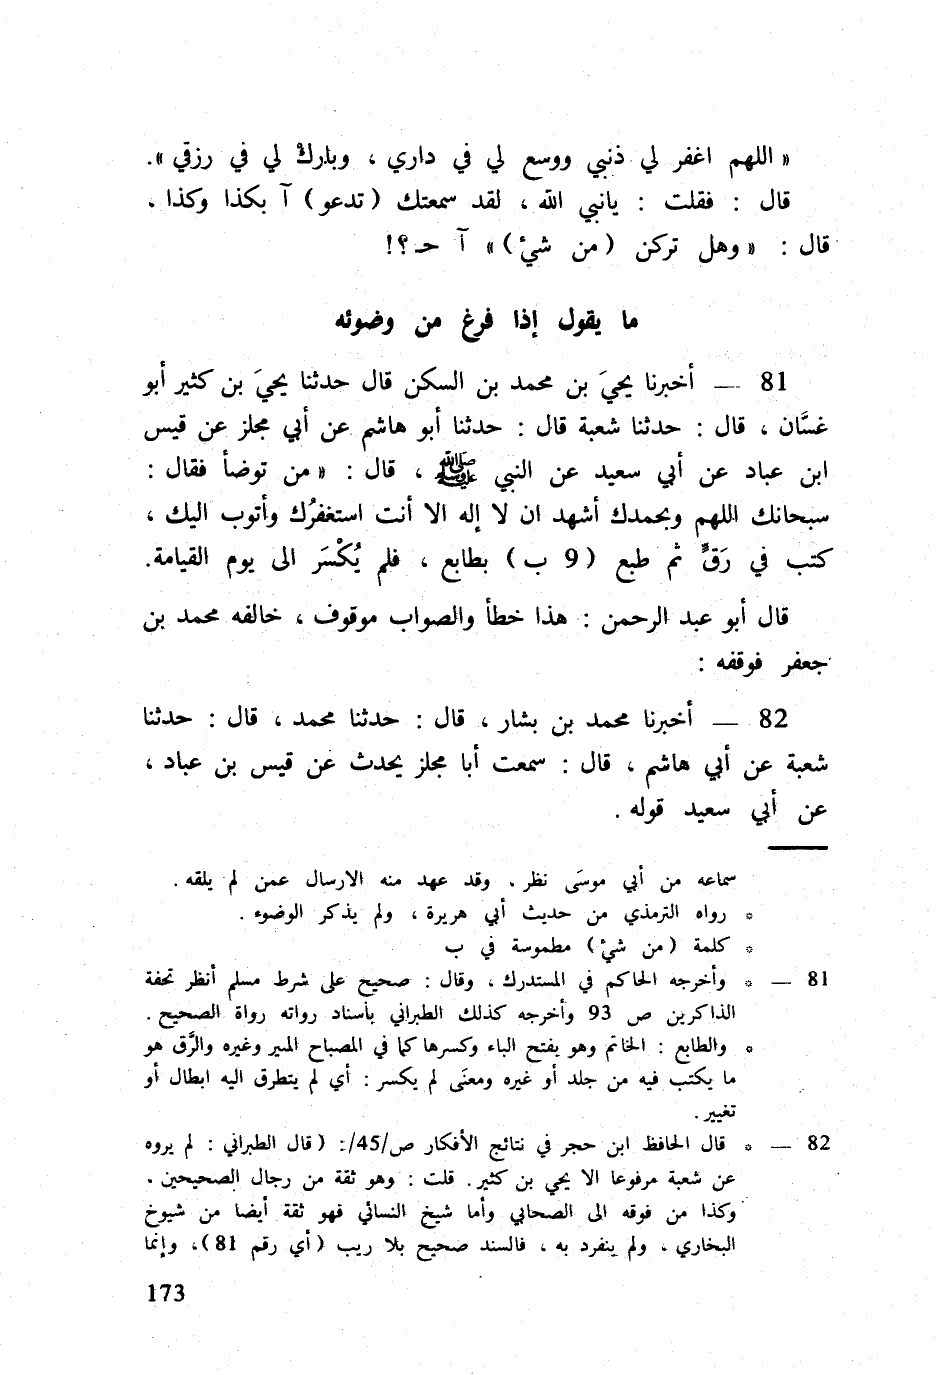 « اللهم اغفر لي ذنبي ووسع لي في داري ، وباركْ لي في رزقي ».
قال : فقلت : يانبي الله ، لقد سمعتك ( تدعو ) آ بكذا وكذا .
قال : « وهل تركن ( من شيْ ) » آ حـ ؟!
ما يقول إذا فرغ من وضوئه
81 — أخبرنا يحيَ بن محمد بن السكن قال حدثنا يحيَ بن كثير أبو
غسَّان ، قال : حدثنا شعبة قال : حدثنا أبو هاشم عن أبي مجلز عن قيس
ابن عباد عن أبي سعيد عن النبي ﷺ ، قال : « من توضأ فقال :
سبحانك اللهم وبحمدك أشهد ان لا إله الا أنت استغفرُك وأتوب اليك ،
كتب في رَقٍّ ثم طبع ( 9 ب ) بطابع ، فلم يُكْسَر الى يوم القيامة.
قال أبو عبد الرحمن : هذا خطأ والصواب موقوف ، خالفه محمد بن
جعفر فوقفه :
82 — أخبرنا محمد بن بشار ، قال : حدثنا محمد ، قال : حدثنا
شعبة عن أبي هاشم ، قال : سمعت أبا مجلز يحدث عن قيس بن عباد ،
عن أبي سعيد قوله .
سماعه من أبي موسَى نظر . وقد عهد منه الارسال عمن لم يلقه .
* رواه الترمذي من حديث أبي هريرة ، ولم يذكر الوضوء .
* كلمة ( من شيْ ) مطموسة في ب
81 — * وأخرجه الحاكم في المستدرك ، وقال : صحيح على شرط مسلم أنظر تحفة
الذاكرين ص 93 وأخرجه كذلك الطبراني بأسناد رواته رواة الصحيح .
* والطابع : الخاتم وهو بفتح الباء وكسرها كما في المصباح المنير وغيره والرَّق هو
ما يكتب فيه من جلد أو غيره ومعنَى لم يكسر : أي لم يتطرق اليه ابطال أو
تغيير .
82 — * قال الحافظ ابن حجر في نتائج الأفكار ص/45/: ( قال الطبراني : لم يروه
عن شعبة مرفوعا الا يحي بن كثير. قلت : وهو ثقة من رجال الصحيحين .
وكذا من فوقه الى الصحابي وأما شيخ النسائي فهو ثقة أيضا من شيوخ
البخاري . ولم ينفرد به ، فالسند صحيح بلا ريب ( أي رقم 81 )، وإنما
173